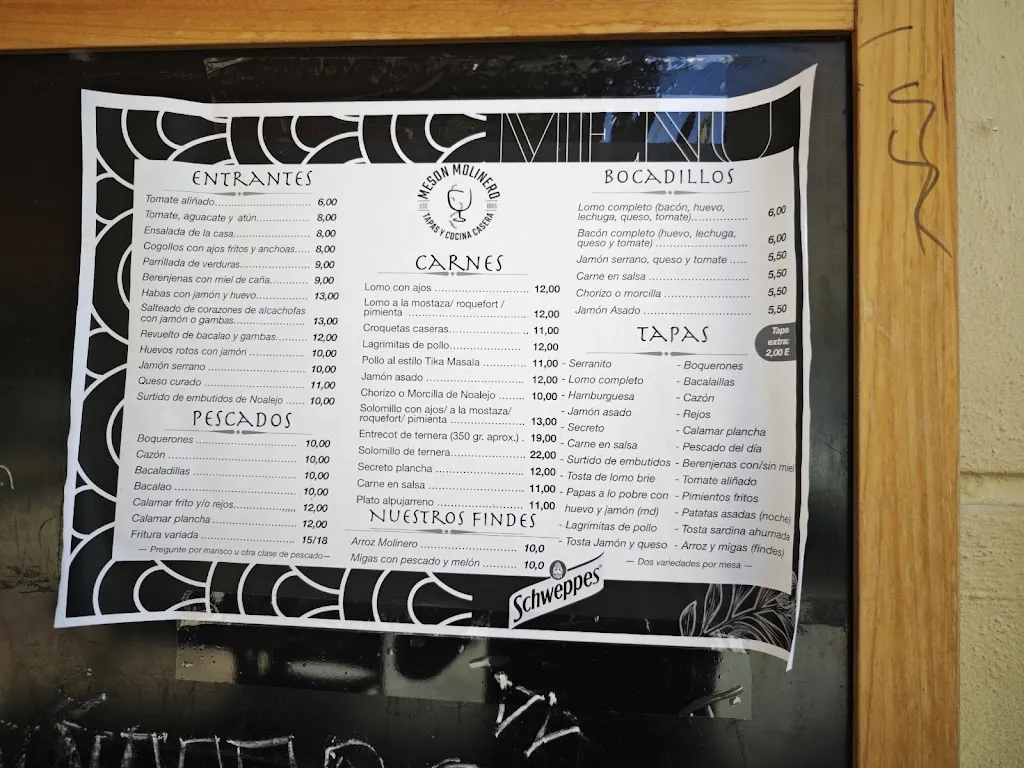 MENU
ENTRANTES
Tomate aliñado 6,00
Tomate, aguacate y atún 8,00
Ensalada de la casa 8,00
Cogollos con ajos fritos y anchoas 8,00
Parrillada de verduras 9,00
Berenjenas con miel de caña 9,00
Habas con jamón y huevo 13,00
Salteado de corazones de alcachofas
con jamón o gambas 13,00
Revuelto de bacalao y gambas 12,00
Huevos rotos con jamón 10,00
Jamón serrano 10,00
Queso curado 11,00
Surtido de embutidos de Noalejo 10,00
PESCADOS
Boquerones 10,00
Cazón 10,00
Bacaladillas 10,00
Bacalao 10,00
Calamar frito y/o rejos 12,00
Calamar plancha 12,00
Fritura variada 15/18
— Pregunte por marisco u otra clase de pescado—
MESON MOLINERO
TAPAS Y COCINA CASERA
CARNES
Lomo con ajos 12,00
Lomo a la mostaza/ roquefort /
pimienta 12,00
Croquetas caseras 11,00
Lagrimitas de pollo 12,00
Pollo al estilo Tika Masala 11,00
Jamón asado 12,00
Chorizo o Morcilla de Noalejo 10,00
Solomillo con ajos/ a la mostaza/
roquefort/ pimienta 13,00
Entrecot de ternera (350 gr. aprox.) 19,00
Solomillo de ternera 22,00
Secreto plancha 12,00
Carne en salsa 11,00
Plato alpujarreno 11,00
NUESTROS FINDES
Arroz Molinero 10,0
Migas con pescado y melón 10,0
BOCADILLOS
Lomo completo (bacón, huevo,
lechuga, queso, tomate) 6,00
Bacón completo (huevo, lechuga,
queso y tomate) 6,00
Jamón serrano, queso y tomate 5,50
Carne en salsa 5,50
Chorizo o morcilla 5,50
Jamón Asado 5,50
TAPAS
Tapa
extra:
2,00 E
- Serranito
- Lomo completo
- Hamburguesa
- Jamón asado
- Secreto
- Carne en salsa
- Surtido de embutidos
- Tosta de lomo brie
- Papas a lo pobre con
huevo y jamón (md)
- Lagrimitas de pollo
- Tosta Jamón y queso
- Boquerones
- Bacalaillas
- Cazón
- Rejos
- Calamar plancha
- Pescado del día
- Berenjenas con/sin miel
- Tomate aliñado
- Pimientos fritos
- Patatas asadas (noche)
- Tosta sardina ahumada
- Arroz y migas (findes)
— Dos variedades por mesa —
Schweppes